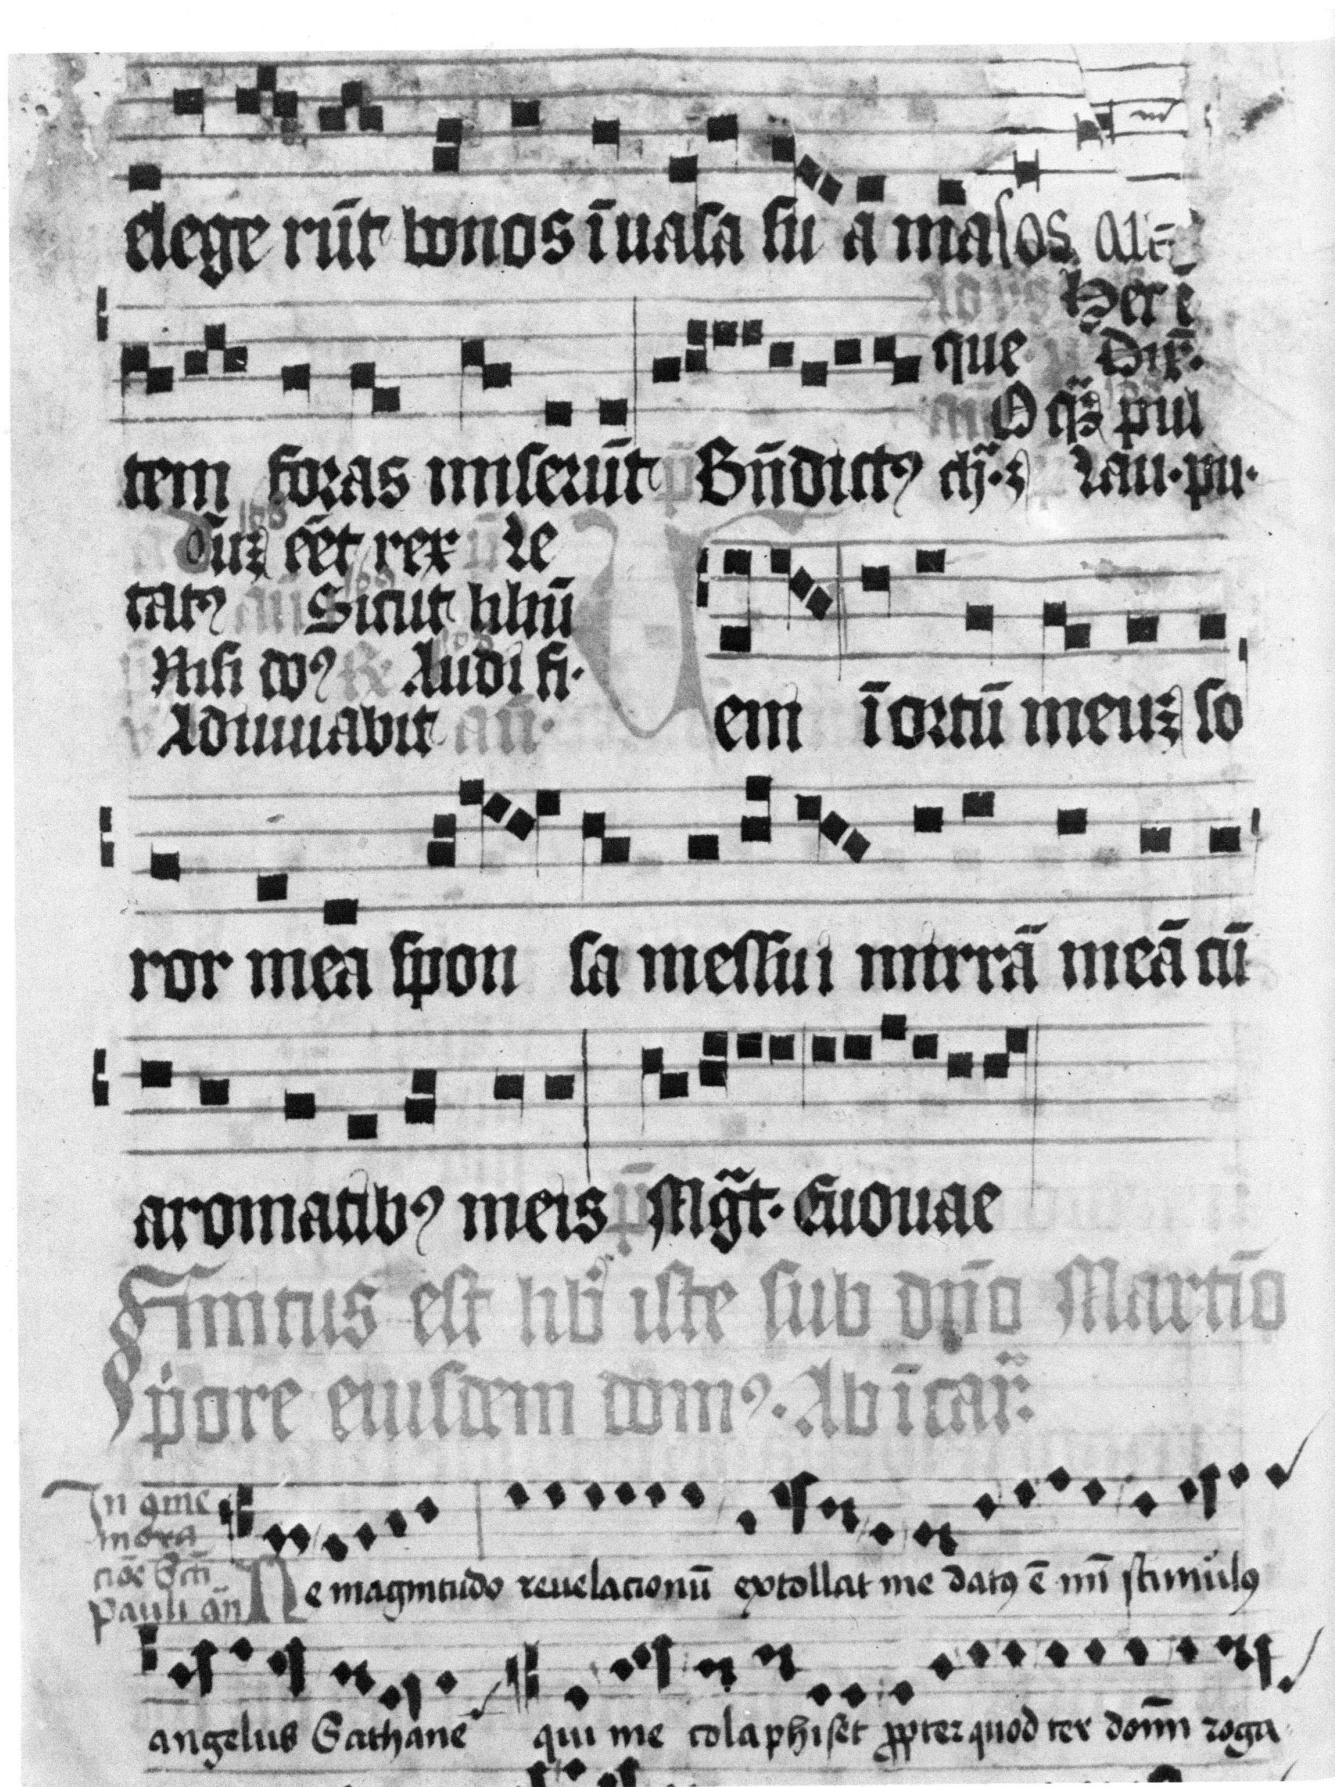 elege rūt bonos ī uasa su a malos aūt
Hec ē
que Dix̄.
O qͣꝫ pul
tem foras miserūt p̄ Bn̄dictꝰ Lau. pu.
dūꝫ eēt rex Le
tatꝰ an̄ Sicut liliū
Nisi doꝰ R Audi fi.
Adiuuabit an̄.
Uem ī ortū meuꝫ so
ror mea spon sa messui mirrā meā cū
aromatibꝰ meis p̄ Mgͣt. Euouae
Finitus est lib iste sub dn̄o Martīo
p̄ore eiusdem domꝰ. Ab īcar̄.
In ꝯme
mora
cioē Scti
Pauli an̄
Ne magnitudo reuelacionū extollat me datꝰ ē m̄ stimulꝰ
angelus Sathane qui me colaphiset ꝓpter quod ter domī roga